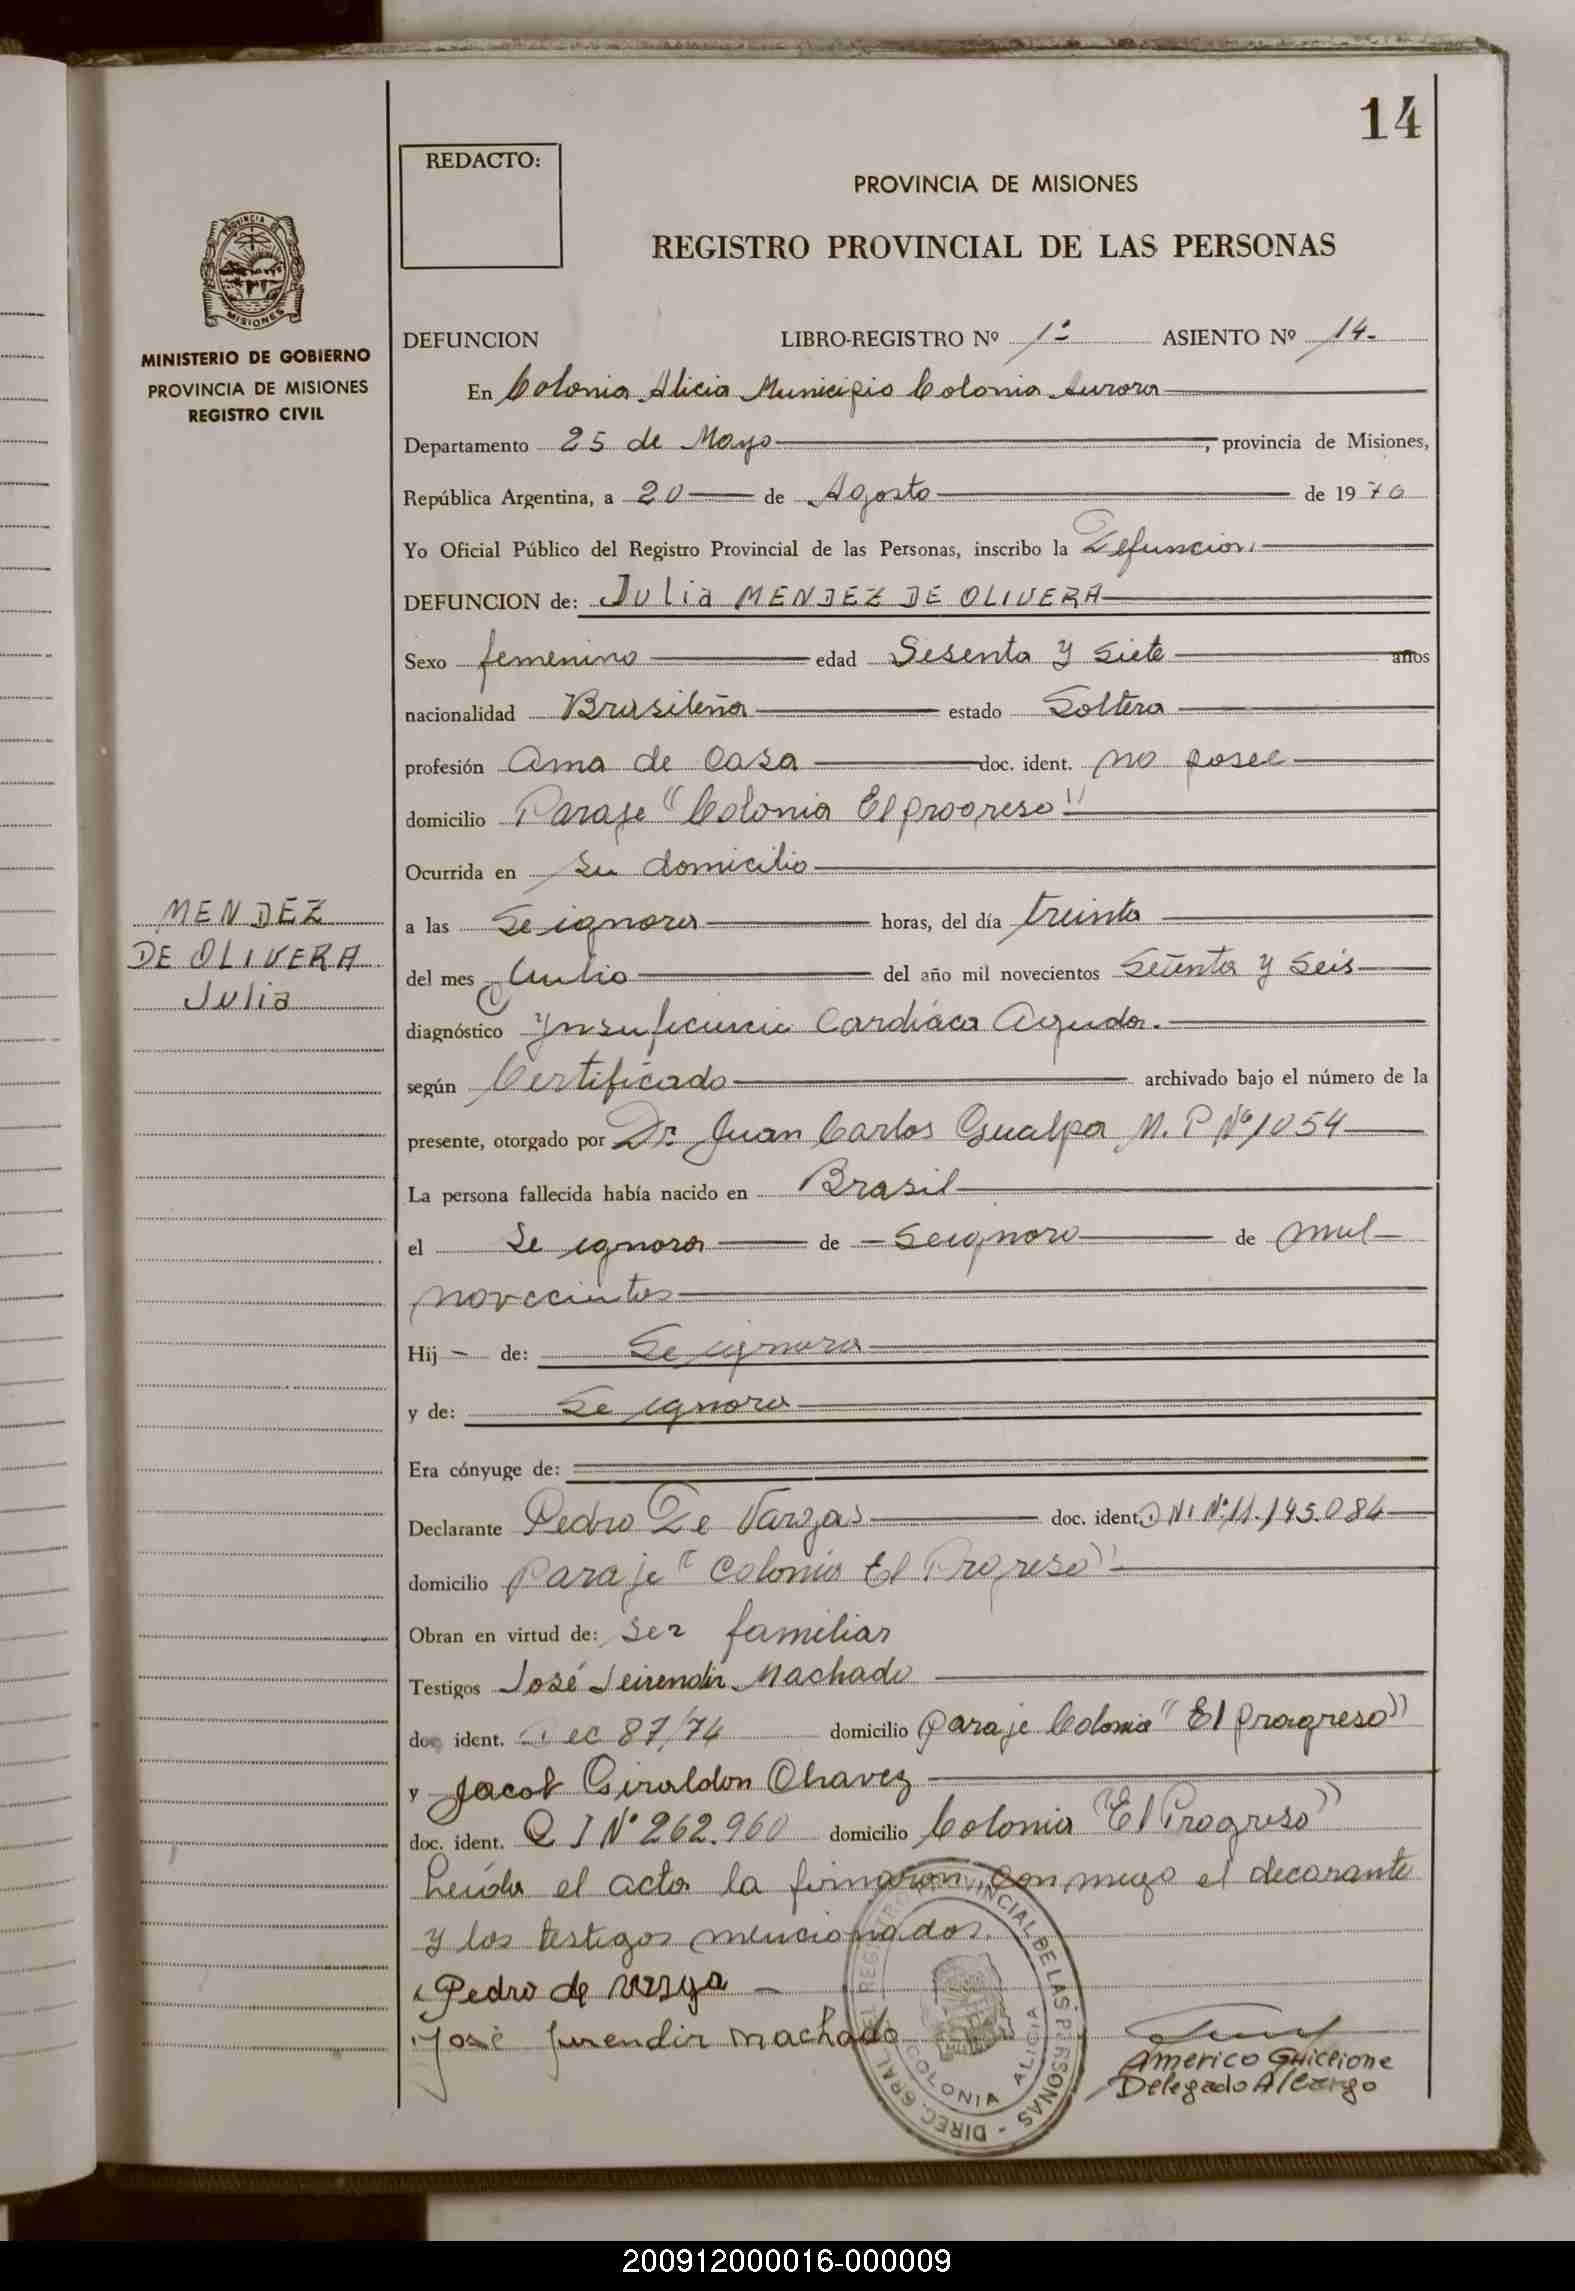 14
REDACTO:
PROVINCIA DE MISIONES
REGISTRO PROVINCIAL DE LAS PERSONAS
PROVINCIA DE
MISIONES
MINISTERIO DE GOBIERNO
PROVINCIA DE MISIONES
REGISTRO CIVIL
DEFUNCION LIBRO-REGISTRO Nº 1º ASIENTO Nº 14.
En Colonia Alicia Municipio Colonia Aurora
Departamento 25 de Mayo, provincia de Misiones,
República Argentina, a 20 de Agosto de 1976
Yo Oficial Público del Registro Provincial de las Personas, inscribo la Defuncion
DEFUNCION de: Julia MENDEZ DE OLIVERA
Sexo femenino edad Sesenta y Siete años
nacionalidad Brasileña estado Soltera
profesión Ama de Casa doc. ident. no posee
domicilio Paraje "Colonia El progreso"
Ocurrida en su domicilio
MENDEZ
DE OLIVERA
Julia
a las Se ignora horas, del día treinta
del mes Julio del año mil novecientos Setenta y Seis
diagnóstico Ynsuficiencia Cardiáca Aguda.
según Certificado archivado bajo el número de la
presente, otorgado por Dr. Juan Carlos Gualpa M. P Nº 1054
La persona fallecida había nacido en Brasil
el Se ignora de Se ignora de mil
novecientos
Hij - de: Se ignora
y de: Se ignora
Era cónyuge de:
Declarante Pedro De Vargas doc. ident. D N I Nº 11.145.084
domicilio Paraje "Colonia El Progreso"
Obran en virtud de: Ser familiar
Testigos José Jeirendir Machado
doc ident. Dec 87/74 domicilio Paraje Colonia "El progreso"
y Jacob Giraldon Chavez
doc. ident. C I Nº 262.960 domicilio Colonia "El Progreso"
Leída el acta la firmaron, con migo el decarante
y los testigos mencionados.
Pedro de varga
José Jurendir machado
DIREC. GRAL. DEL REGISTRO PROVINCIAL DE LAS PERSONAS
COLONIA ALICIA
Americo
Delegado A/Cargo
200912000016-000009